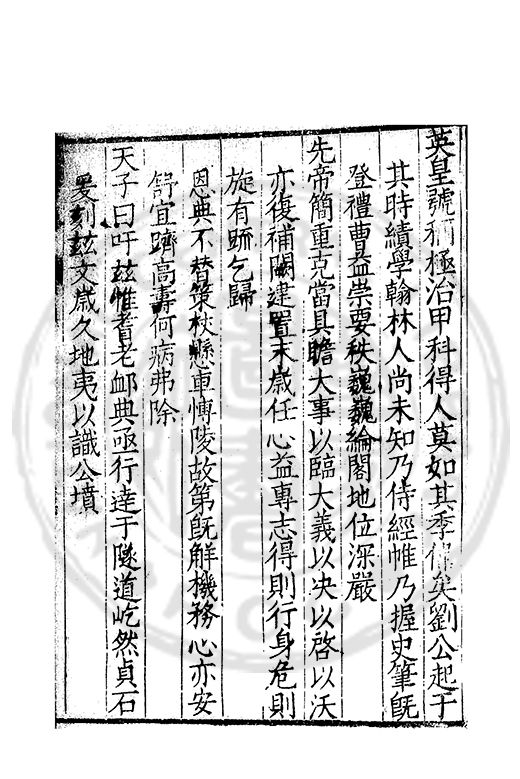 英皇號稱極治甲科得人莫如其季偉矣劉公起于
其時績學翰林人尚未知乃侍經帷乃握史筆旣
登禮曹益崇要秩巍巍綸閣地位深嚴
先帝簡重克當具瞻大事以臨大義以决以啓以沃
亦復補闕建置末歲任心益專志得則行身危則
旋有疏乞歸
恩典不替策杖懸車慱陵故第旣解機務心亦安
舒宜躋高壽何病弗除
天子曰吁兹惟耆老邮典亟行達于隧道屹然貞石
爰刻兹文歲久地夷以識公墳